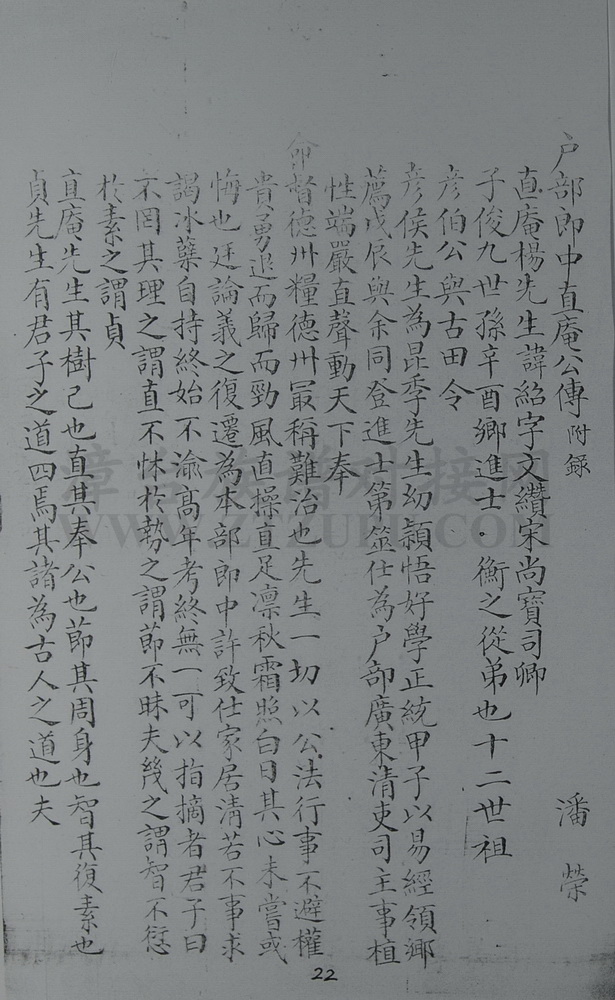 户部郎中直庵公傳 附錄 潘榮
直庵楊先生諱紹字文纘宋尚寶司卿
子俊九世孫辛酉鄉進士·衡之從弟也十二世祖
彥伯公與古田令
彥侯先生為昆季先生幼穎悟好學正統甲子以易經領鄉
薦戊辰與余同登進士第筮仕為户部廣東清吏司主事植
性端嚴直聲動天下奉
命督德州糧德州最稱難治也先生一切以公法行事不避權
貴勇退而歸而勁風直操直足凛秋霜照白日其心未嘗或
悔也廷論義之復遷為本部郎中許致仕家居清若不事求
謁冰蘖自持終始不渝高年考終無一可以指摘者君子曰
不罔其理之謂直不怵於勢之謂節不昧夫幾之謂智不愆
於素之謂貞
直庵先生其樹己也直其奉公也節其周身也智其復素也
貞先生有君子之道四焉其諸為古人之道也夫
22
WWW.ZZZUPU.COM